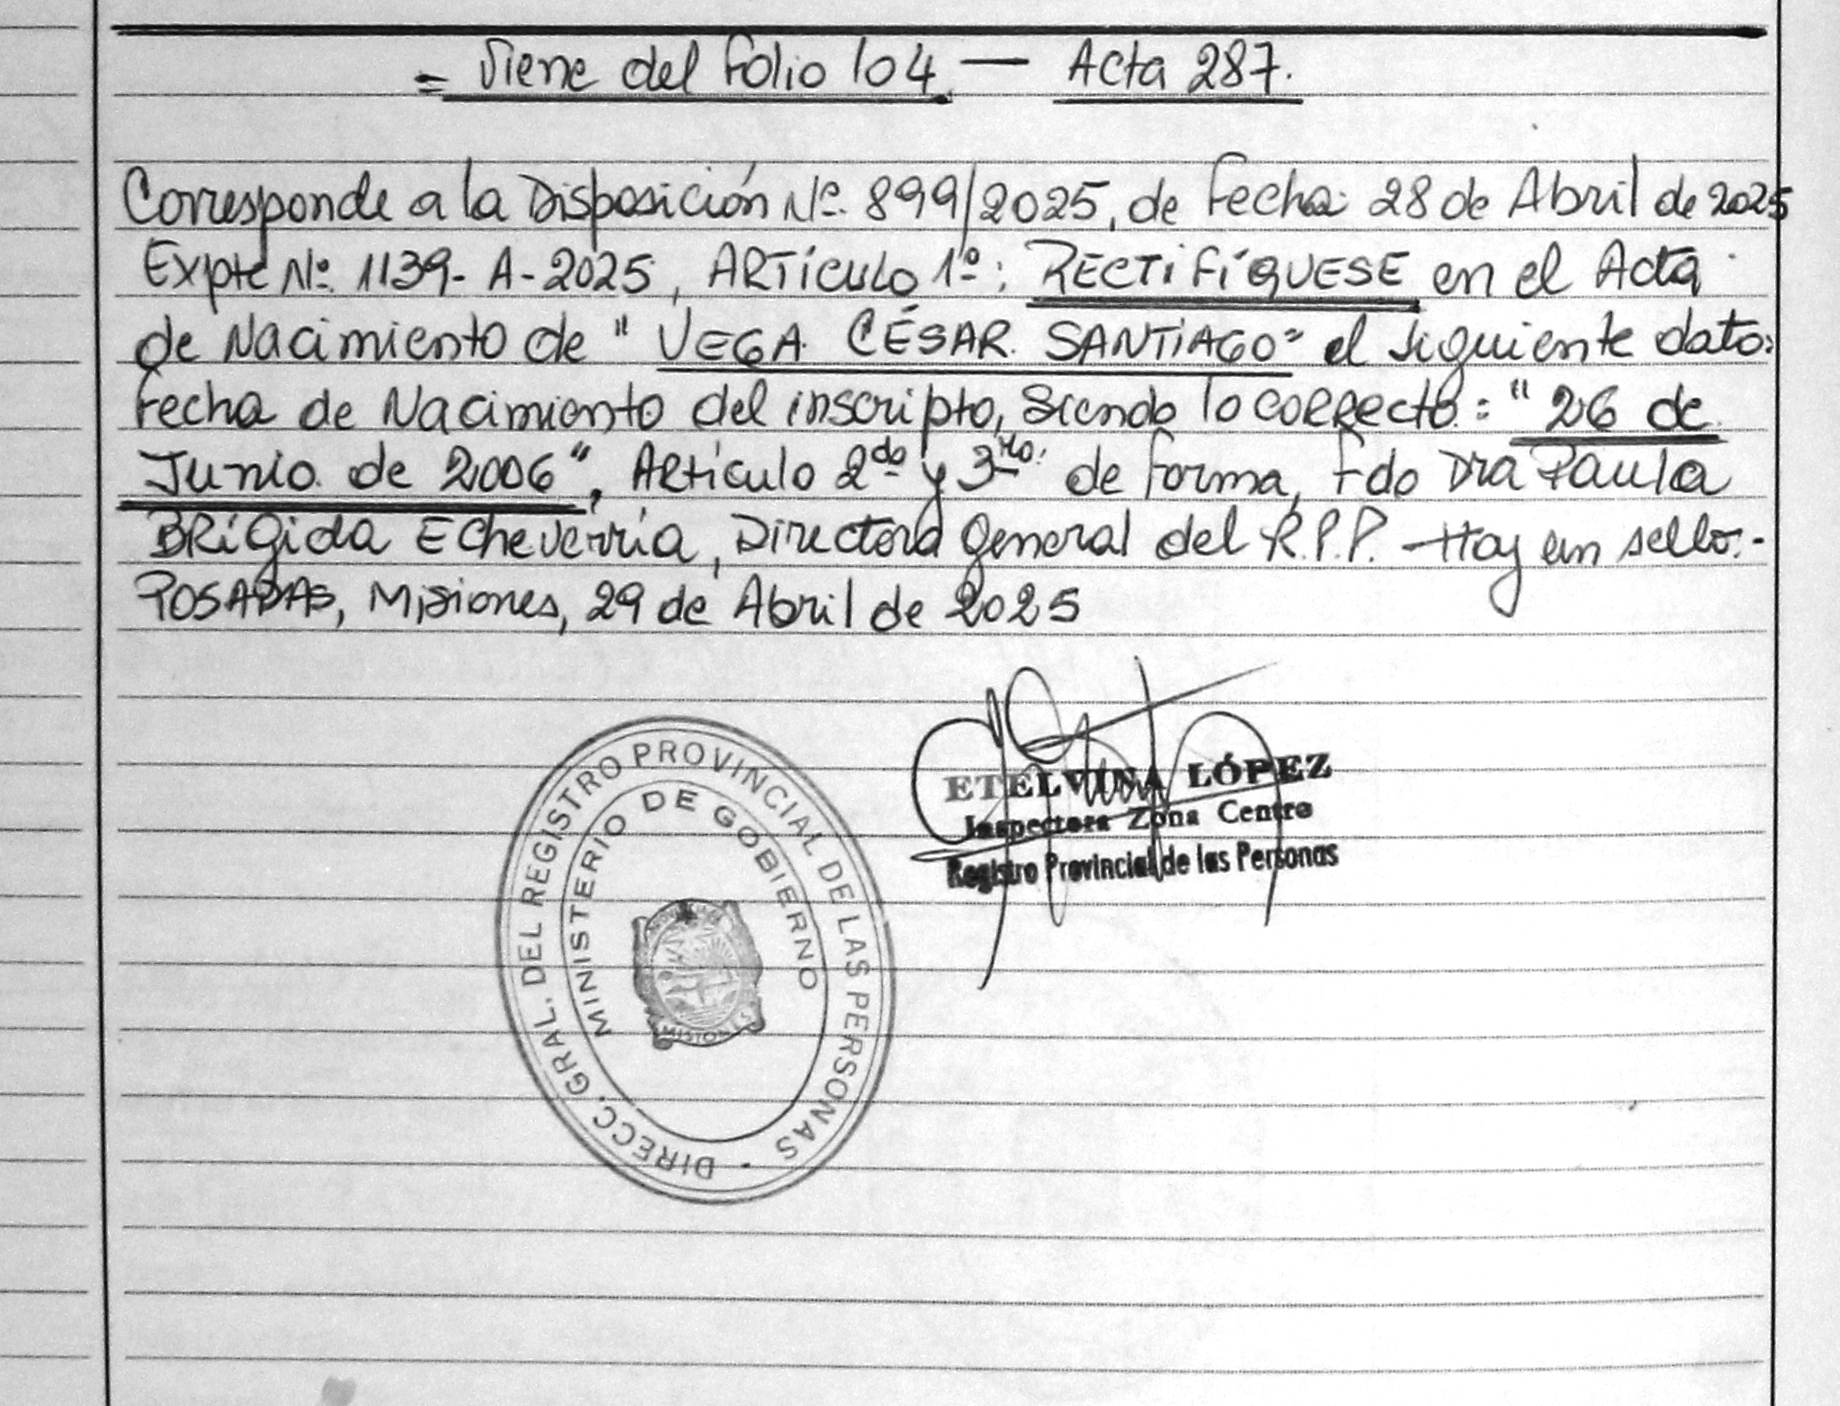 = Viene del Folio 104. — Acta 287.
Corresponde a la Disposición Nº. 899/2025, de Fecha: 28 de Abril de 2025
Expte Nº. 1139- A-2025, ARTículo 1º: RECTiFíQUESE en el Acta
de Nacimiento de "VEGA. CÉSAR. SANTiAGO" el siguiente dato:
Fecha de Nacimiento del inscripto, siendo lo correcto: "26 de
Junio de 2006", Artículo 2do y 3ro: de Forma, Fdo Dra Paula
BRígida Echeverría, Directora General del R.P.P. -Hay un sello.-
POSADAS, Misiones, 29 de Abril de 2025
ETELVINA LÓPEZ
Inspectora Zona Centro
Registro Provincial de las Personas
DIRECC. GRAL. DEL REGISTRO PROVINCIAL DE LAS PERSONAS -
MINISTERIO DE GOBIERNO
MISIONES